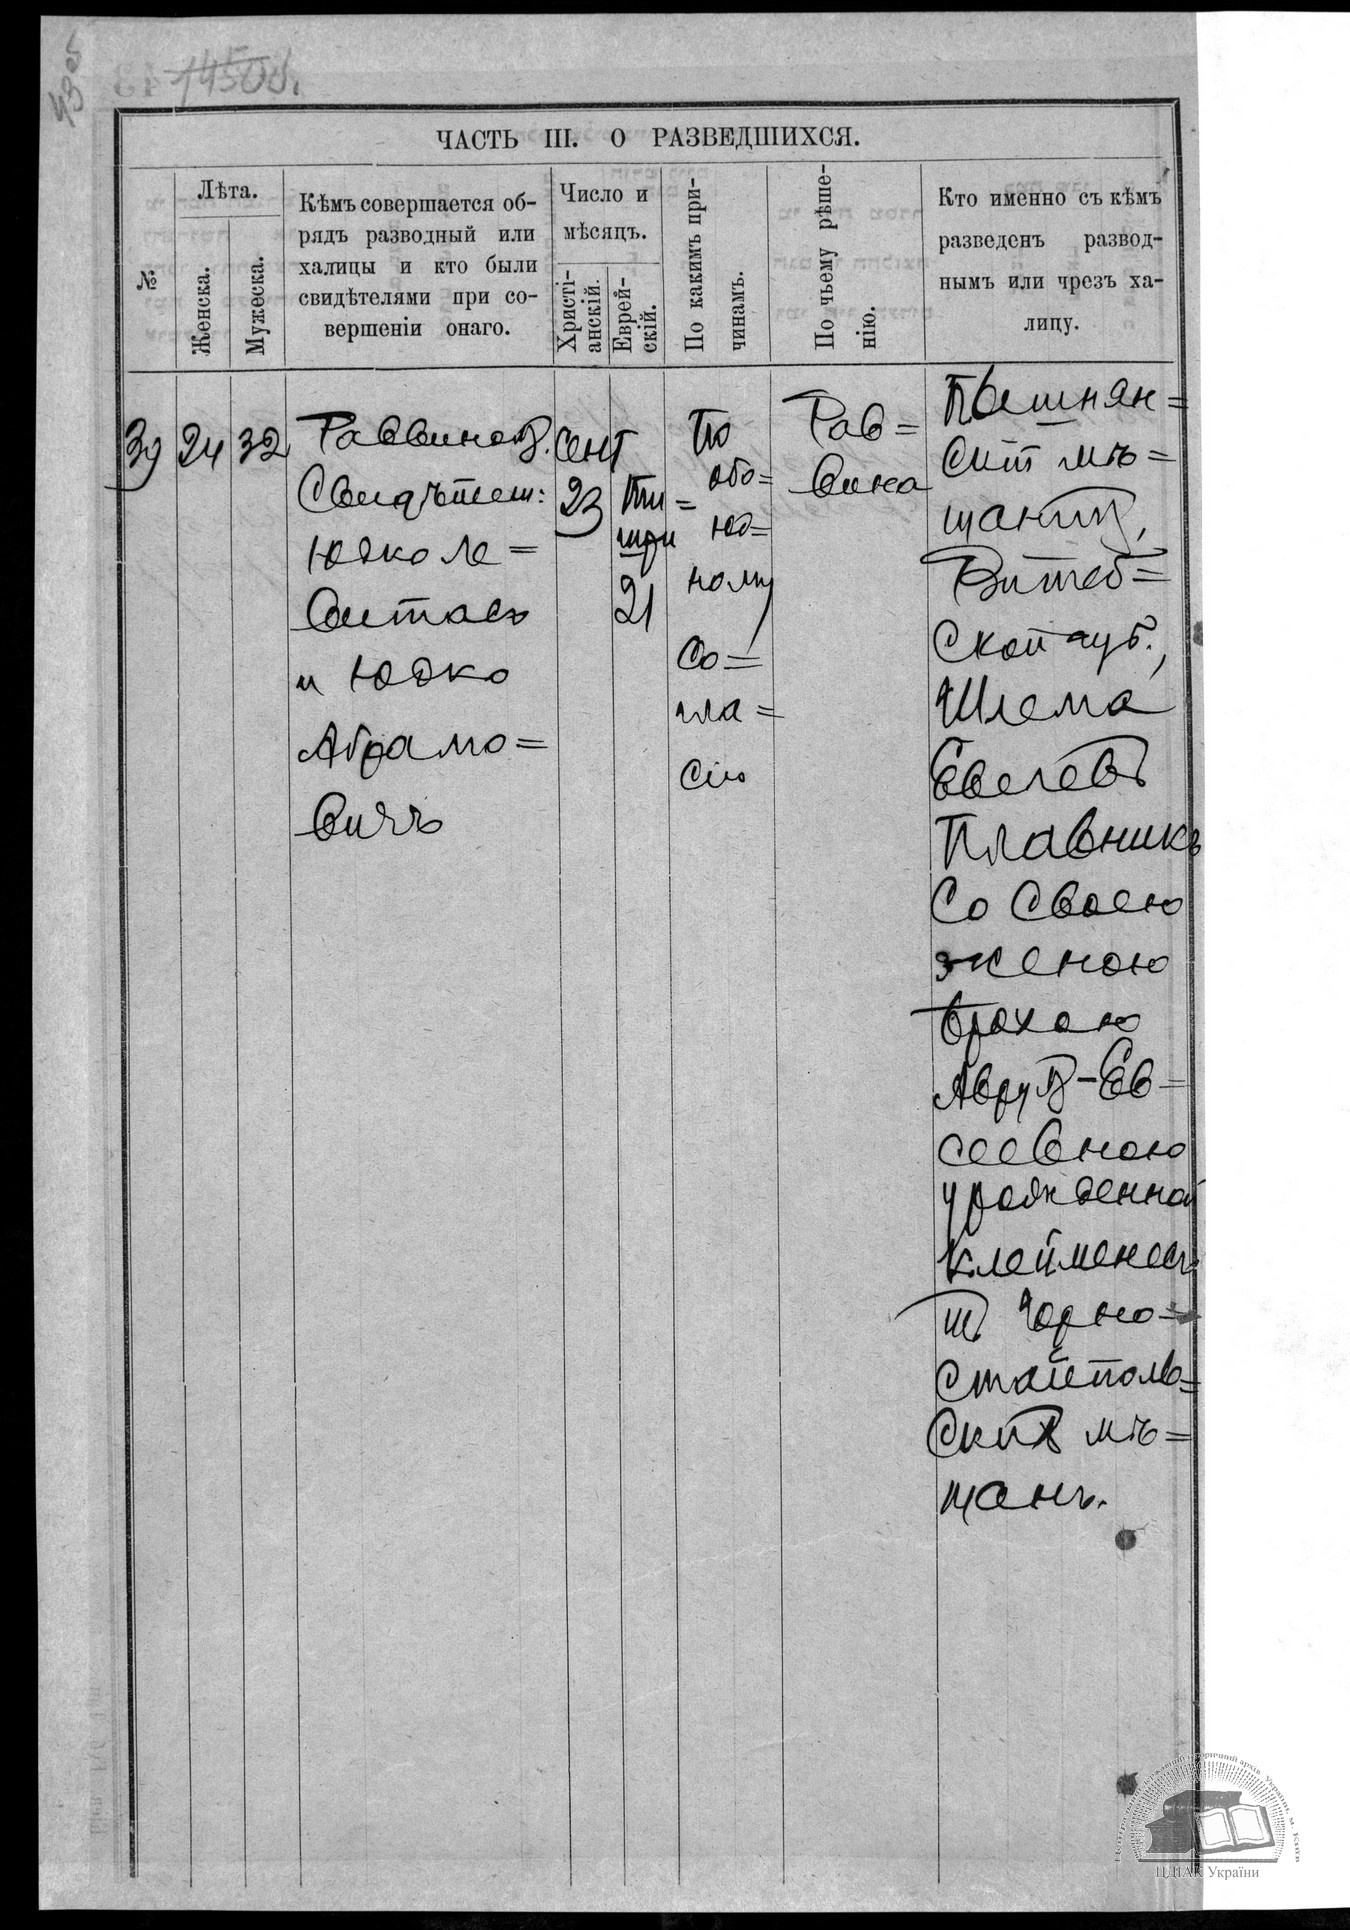 1450об.
ЧАСТЬ III. О РАЗВЕДШИХСЯ.
№
Лѣта.
Женска.
Мужеска.
Кѣмъ совершается об-
рядъ разводный или
халицы и кто были
свидѣтелями при со-
вершеніи онаго.
Число и
мѣсяцъ.
Христі-
анскій.
Еврей-
скій.
По какимъ при-
чинамъ.
По чьему рѣше-
нію.
Кто именно съ кѣмъ
разведенъ развод-
нымъ или чрезъ ха-
лицу.
39
24
32
Раввиномъ.
Свидѣтели:
Юдко Ле=
витасъ
и Юдко
Абрамо=
вичъ
Сент
23
Ти=
шри
21
По
обо=
юд=
ному
со=
гла=
сію
Рав=
вина
скій мѣ=
щанинъ,
Витеб=
ской губ.,
Шлема
Евелевъ
Плавникъ
со своею
женою
Брохою
Авруй-Ев=
сеевною
урожденной
Клейменесъ
изъ Черно=
стайполь=
скихъ мѣ=
щанъ.
ЦДІАК України